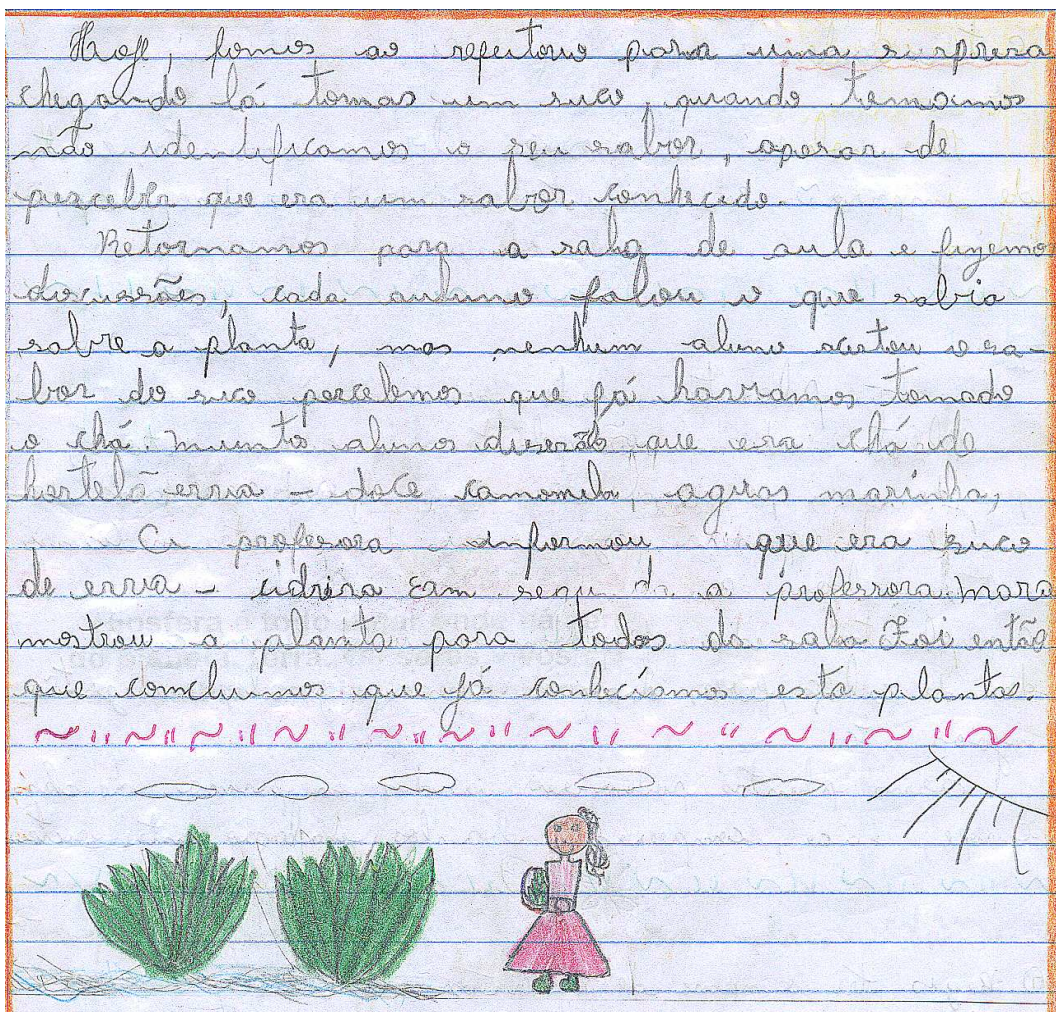 Hoje, fomos ao refeitorio para uma surpresa
chegando lá tomas um suco, quando tomamos
não identificamos o seu sabor, apesar de
perceber que era um sabor conhecido.
Retornamos para a sala de aula e fizemo
discussões, cada auluno falou o que sabia
sobre a planta, mas nenhum aluno acertou o sa-
bor do suco percebemos que já haviamos tomado
o chá. munto alunos diserão que era chá de
hortelã erva - doce camomila, aguas marinha,
A profesora informou que era suco
de erva - cidrira Em segui da a professora mara
mostrou a planta para todos da sala Foi então
que concluimos que já conhecíamos esta planta.